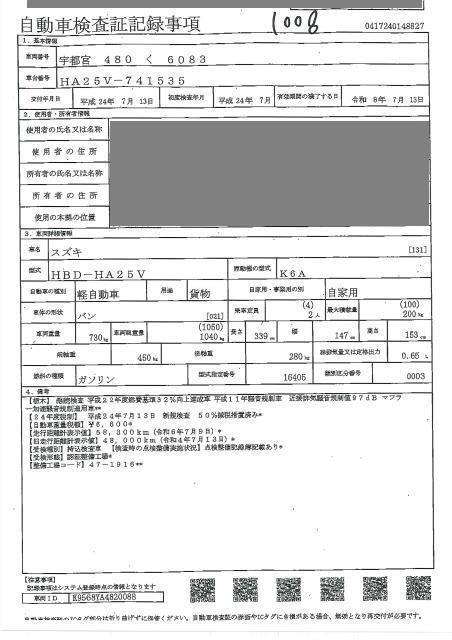 自動車検査証記録事項
1008
0417240148827
1. 基本情報
車両番号 宇都宮 480 く 6083
車台番号 HA25V-741535
交付年月日 平成 24年 7月 13日 初度検査年月 平成 24年 7月 有効期間の満了する日 令和 8年 7月 13日
2. 使用者・所有者情報
使用者の氏名又は名称
使用者の住所
所有者の氏名又は名称
所有者の住所
使用の本拠の位置
3. 車両詳細情報
車名 スズキ [131]
型式 HBD-HA25V 原動機の型式 K6A
自動車の種別 軽自動車 用途 貨物 自家用・事業用の別 自家用
車体の形状 バン [021] 乗車定員 (4) 2人 最大積載量 (100) 200kg
車両重量 730kg 車両総重量 (1050) 1040kg 長さ 339cm 幅 147cm 高さ 153cm
前軸重 450kg 後軸重 280kg 総排気量又は定格出力 0.65L
燃料の種類 ガソリン 型式指定番号 16405 類別区分番号 0003
4. 備考
【栃木】 継続検査 平成22年度燃費基準32%向上達成車 平成11年騒音規制車 近接排気騒音規制値97dB マフラ
ー加速騒音規制適用車**
【24年度税制】 平成24年7月13日 新規検査 50%減税措置済み*
【自動車重量税額】 ¥6,600*
【走行距離計表示値】 58,300km (令和6年7月9日)*
【旧走行距離計表示値】 48,000km (令和4年7月13日)*
【受検種別】 持込検査車 【検査時の点検整備実施状況】 点検整備記録簿記載あり*
【受検形態】 認証整備工場*
【整備工場コード】 47-1916**
【注意事項】
記録事項はシステム登録時点の情報となります
車両ID K9568YA4820088
自動車検査証のICタグ部分は折り曲げずに保管ください。自動車検査証の券面やICタグに毀損がある場合、無効となり再交付が必要です。